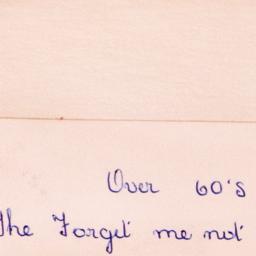 Over 60's
The Forget me not